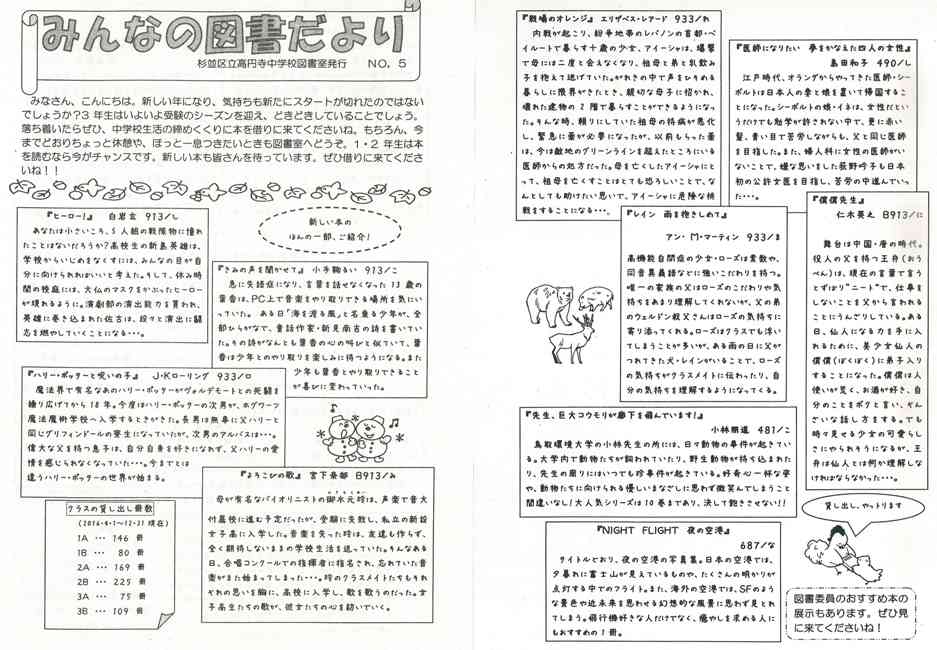 みんなの図書だより
杉並区立高円寺中学校図書室発行 NO. 5
みなさん、こんにちは。新しい年になり、気持ちも新たにスタートが切れたのではない
でしょうか?3年生はいよいよ受験のシーズンを迎え、どきどきしていることでしょう。
落ち着いたらぜひ、中学校生活の締めくくりに本を借りに来てくださいね。もちろん、今
までどおりちょっと休憩や、ほっと一息つきたいときも図書室へどうぞ。1・2年生は本
を読むなら今がチャンスです。新しい本も皆さんを待っています。ぜひ借りに来てくださ
いね!!
『ヒーロー!』 白岩玄 913/し
あなたは小さいころ、5人組の戦隊物に憧れ
たことはないだろうか?高校生の新島英雄は、
学校からいじめをなくすには、みんなの目が自
分に向けられればいいと考えた。そして、休み時
間の校庭には、大仏のマスクをかぶったヒーロ
ーが現れるように。演劇部の演出能力を買われ、
英雄に巻き込まれた佐古は、段々と演出に闘
志を燃やしていくことになる・・・。
新しい本の
ほんの一部、ご紹介!
『きみの声を聞かせて』 小手鞠るい 913/こ
急に失語症になり、言葉を話せなくなった13歳の
葉香は、PC上で音楽をやり取りできる場所を気にい
っていた。ある日「海を渡る風」と名乗る少年が、全
部ひらがなで、童話作家・新見南吉の詩を書いてい
た。その詩がなんとも葉香の心の叫びと似ていて、葉
香は少年とのやり取りを楽しみに待つようになる。また
少年も葉香とやり取りできること
が喜びに変わっていった。
『ハリー・ポッターと呪いの子』 J・Kローリング 933/ロ
魔法界で有名なあのハリー・ポッターがヴォルデモートとの死闘を
繰り広げてから18年。今度はハリー・ポッターの次男が、ホグワーツ
魔法魔術学校へ入学するときがきた。長男は無事に父ハリーと
同じグリフィンドールの寮生になっていたが、次男のアルバスは・・・。
偉大な父を持つ息子は、自分自身を好きになれず、父ハリーの愛
情を感じられなくなっていた・・・。今までとは
違うハリー・ポッターの世界が始まる。
『よろこびの歌』 宮下奈都 B913/み
母が有名なバイオリニストの御木元玲は、声楽で音大
付属校に進む予定だったが、受験に失敗し、私立の新設
女子高に入学した。音楽を失った玲は、友達も作らず、
全く期待しないままの学校生活を送っていた。そんなある
日、合唱コンクールでの指揮者に指名され、忘れていた音
楽がまた始まってしまった・・・。玲のクラスメイトたちもそれ
ぞれの思いを胸に、高校に入学し、歌を歌うのだった。女
子高生たちの歌が、彼女たちの心を紡いでいく。
クラスの貸し出し冊数
(2016.4.1〜12.21現在)
1A ・・・ 146 冊
1B ・・・ 80 冊
2A ・・・ 169 冊
2B ・・・ 225 冊
3A ・・・ 75 冊
3B ・・・ 109 冊
『戦場のオレンジ』 エリザベス・レアード 933/れ
内戦が起こり、紛争地帯のレバノンの首都・ベ
イルートで暮らす十歳の少女、アイーシャは、爆撃
で母には二度と会えなくなり、祖母と弟と乳飲み
子を抱えて逃げていた。がれきの中で声をひそめる
暮らしに限界がきたとき、親切な母子に招かれ、
壊れた建物の2階で暮らすことができるようになっ
た。そんな時、頼りにしていた祖母の持病が悪化
し、緊急に薬が必要になったが、以前もらった薬
は、今は敵地のグリーンラインを超えたところにいる
医師からの処方だった。母を亡くしたアイーシャにと
って、祖母を亡くすことはとても恐ろしいことで、な
んとしても助けたい思いで、アイーシャに危険な挑
戦をすることになる・・・。
『医師になりたい 夢をかなえた四人の女性』
島田和子 490/し
江戸時代、オランダからやってきた医師・シー
ボルトは日本人の妻と娘を置いて帰国するこ
とになった。シーボルトの娘・イネは、女性だとい
うだけでも勉学が許されない中で、更に赤い
髪、青い目で苦労しながらも、父と同じ医師
を目指した。また、婦人科に女性の医師がい
ないことで、嫌な思いをした荻野吟子も日本
初の公許女医を目指し、苦労の中進んでいっ
た・・・。
『レイン 雨を抱きしめて』
アン・M・マーティン 933/ま
高機能自閉症の少女・ローズは素数や、
同音異義語などに強いこだわりを持つ。
唯一の家族の父はローズのこだわりや気
持ちをあまり理解してくれないが、父の弟
のウェルドン叔父さんはローズの気持ちに
寄り添ってくれる。ローズはクラスでも浮い
てしまうことが多いが、ある雨の日に父が
つれてきた犬・レインがいることで、ローズ
の気持ちがクラスメイトに伝わったり、自
分の気持ちを理解するようになってくる。
『僕僕先生』
仁木英之 B913/に
舞台は中国・唐の時代。
役人の父を持つ王弁(おう
べん)は、現在の言葉で言う
とずばり“ニート”で、仕事を
しないことを父から言われる
ことにうんざりしている。ある
日、仙人になる力を手に入
れるために、美少女仙人の
僕僕(ぼくぼく)に弟子入り
することになった。僕僕は人
使いが荒く、お酒が好き、自
分のことをボクと言い、ぞん
ざいな話し方をする。でも
時々見せる少女の可愛らし
さにやられそうになるが、王
弁は仙人とは何か理解しな
ければならなかった・・・。
『先生、巨大コウモリが廊下を飛んでいます!』
小林朋道 481/こ
鳥取環境大学の小林先生の所には、日々動物の事件が起きてい
る。大学内で動物たちが飼われていたり、野生動物が持ち込まれた
り、先生の周りにはいつでも珍事件が起きている。好奇心一杯な姿
や、動物たちに向けられる優しいまなざしに思わず微笑んでしまうこと
間違いなし!大人気シリーズは10巻まであり、決して飽きさせない!!
『NIGHT FLIGHT 夜の空港』
687/な
タイトルどおり、夜の空港の写真集。日本の空港では、
夕暮れに富士山が見えているものや、たくさんの明かりが
点灯する中でのフライト。また、海外の空港では、SFのよう
な景色や近未来を思わせる幻想的な風景に思わず見とれ
てしまう。飛行機好きな人だけでなく、癒やしを求める人に
もおすすめの1冊。
貸し出し、やっとります
図書委員のおすすめ本の
展示もあります。ぜひ見
に来てくださいね!